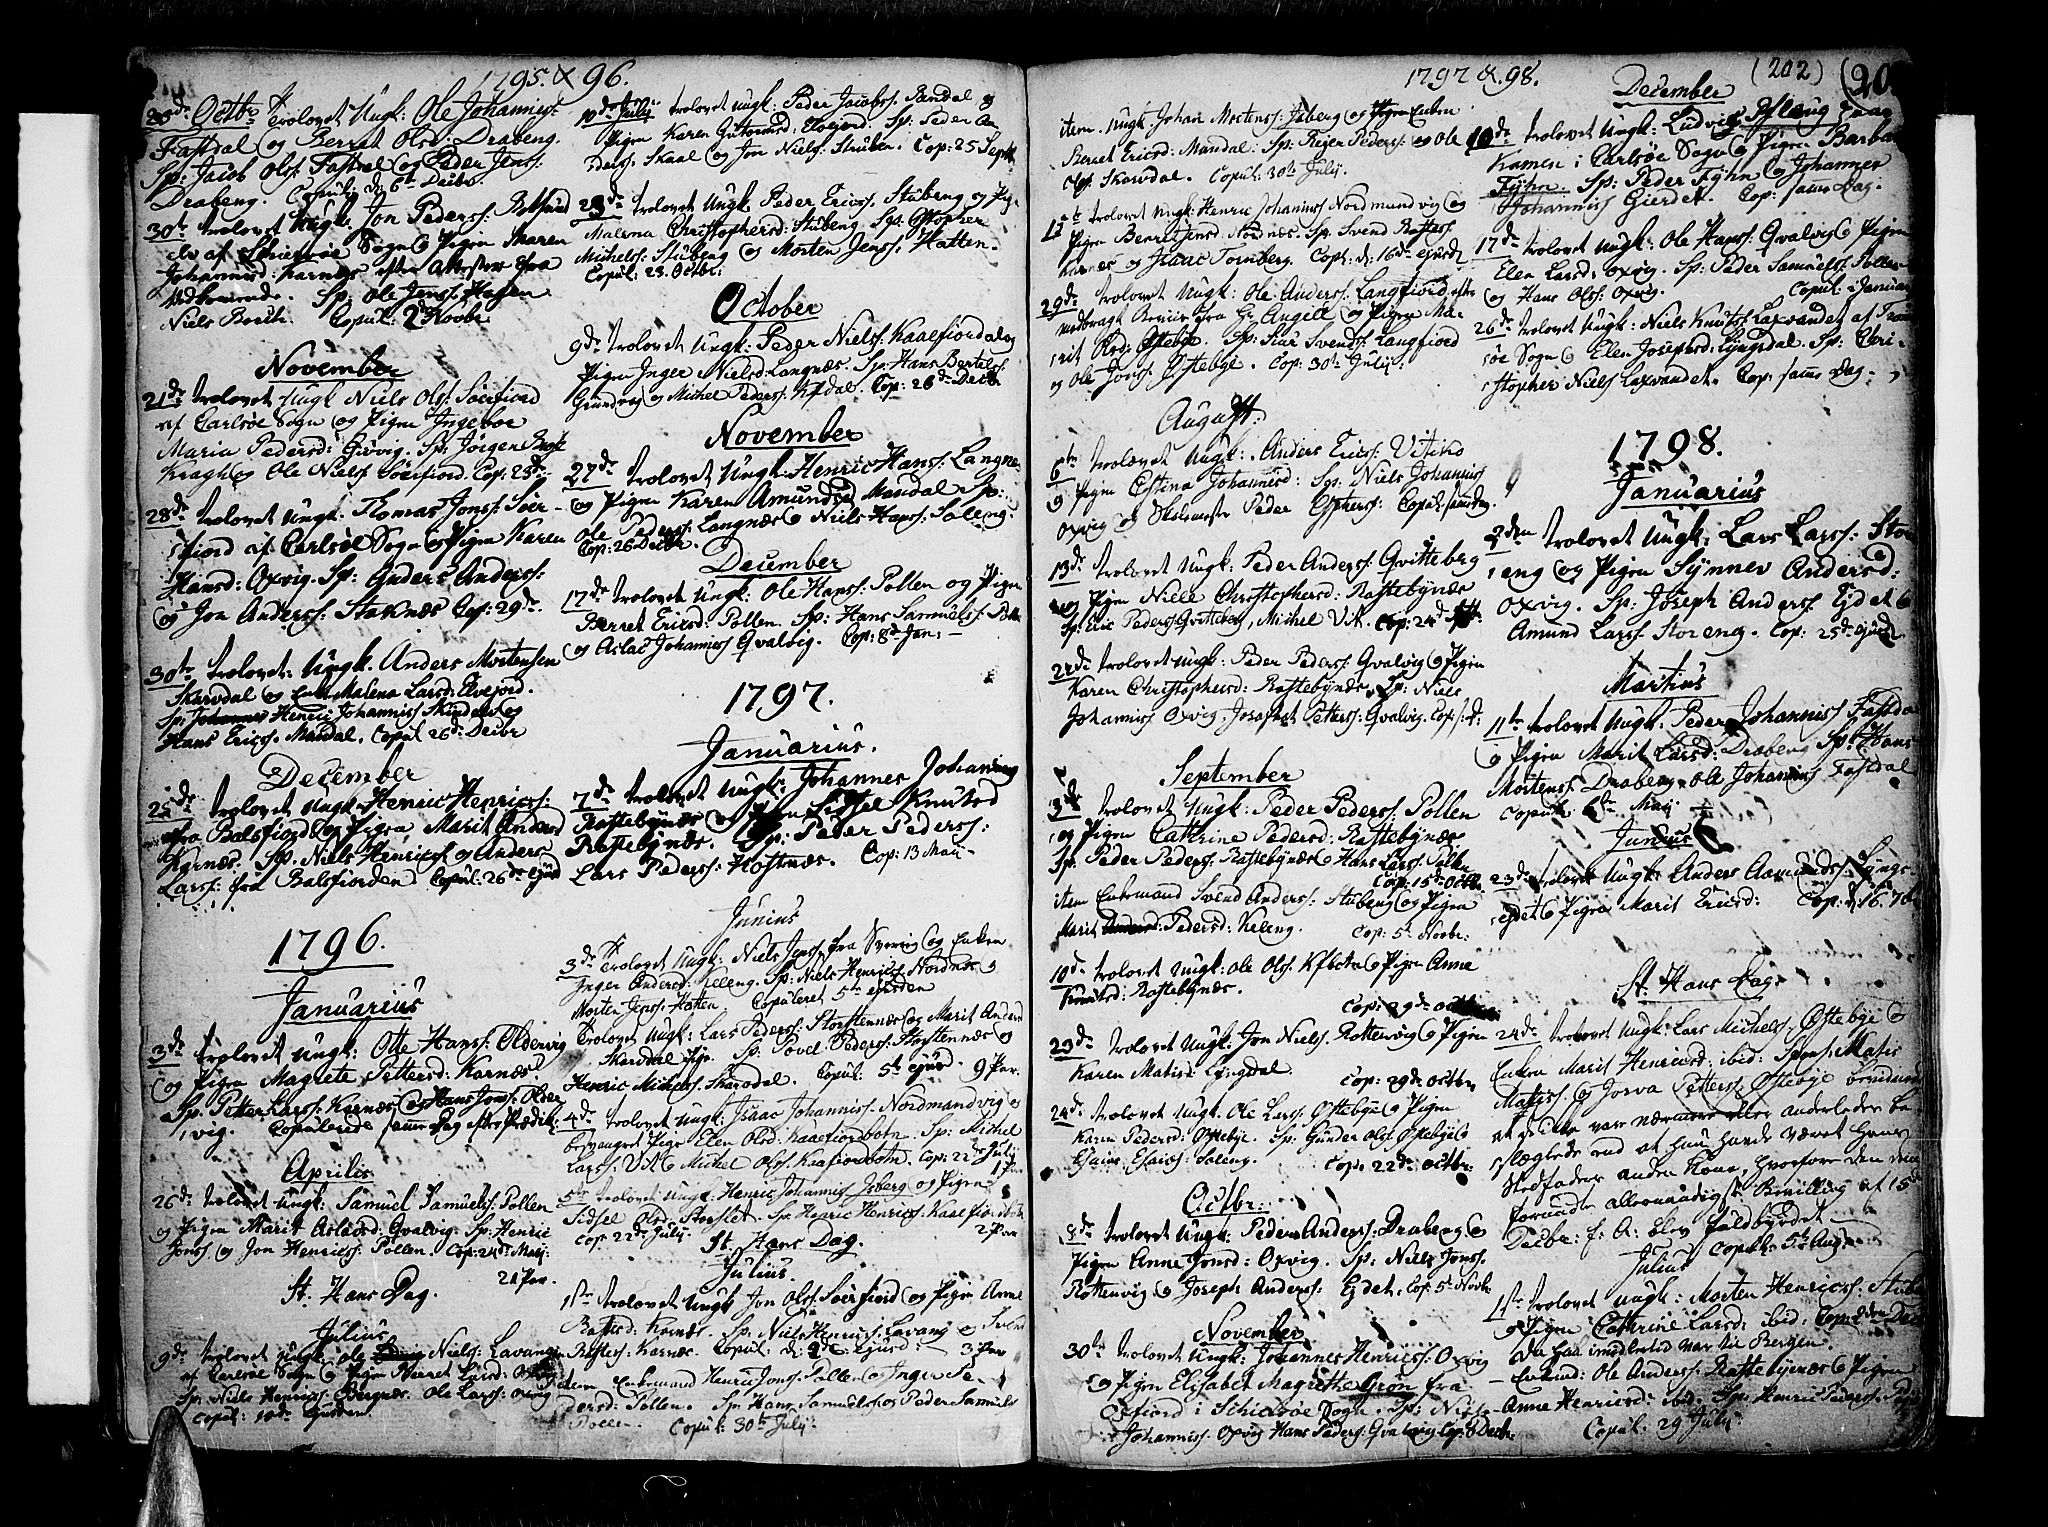 1795 & 96.
Octbr Trolovet Ungk: Ole Johanniss:
Fastdal og Berret Olsd: Drabeng.
Sp: Jacob Olss: Fastdal og Peder Jenss:
Drabeng. Copul: d. 6te Decbr.
30te trolovet Ungk: Jon Pederss:
af Sogn og Pigen Karen
Johannisd: Karnæs efter
Sp: Ole Jenss: Hagen
Niels Copul: 2 Novbr
November
21de trolovet Ungk Niels Olss: Sörfiord
af Carlsöe Sogn og Pigen Ingeboe
Maria Pedersd: Qvvig. Sp: Jörgen
Kragh og Ole Nielss Sörfiord Cop: 23de
28de trolovet Ungk: Thomas Jonss: Sör-
fiord af Carlsöe Sogn og Pigen Karen
Hansd: Oxvig. Sp: Anders Anderss:
og Jon Anderss: Staknæs Cop: 29de.
30te trolovet Ungk. Anders Mortensen
Skarsdal og Enke Malena Larsd: Elvejord.
Sp: Henric Johanniss og
Hans Ericss. Mandal. Copul 26de Decbr
December
25de trolovet Ungk Henric Henricss:
fra Balsfiord og Pigen Marit Andersd
Karnæs. Sp: Niels Henricss og Anders
Larss: fra Balsfiorden Copul: 26de ejusd
1796.
Januarius
3de trolovet Ungk: Otte Hanss: Oldervig
og Pigen Magrete Pettersd: Karnæs.
Sp: Petter Larss: Karnæs og Hans Jonss: Older
vig. Copulerede samme Dag efter Prædik:
Aprilis
26de trolovet Ungk: Samuel Samuelss: Pollen
og Pigen Marit Aslacsd: Qvalvig. Sp: Henric
Jonss. og Jon Henricss: Pollen. Cop: 24de Maij
21 Par.
St. Hans Dag.
Julius
9de trolovet Ungk: Ole Nielss: Lavang
af Carlsöe Sogn og Pigen Berret Larsd: Oxvig
Sp: Niels Henricss Bergnæs. Ole Larss: Oxvig
Copul: 10de ejusdem.
10de Julij trolovet Ungk: Peder Jacobss. Mandal og
Pigen Karen Gutormsd: Elvejord. Sp: Peder An
derss: Skaal og Jon Nielss: Stuben. Cop: 25 Septbr.
23de trolovet Ungk Peder Ericss. Stubeng og Pige
Malena Christophersd: Stubeng. Sp: Christopher
Michelss: Stubeng og Morten Jenss: Hatten.
Copul: 23. Octbr:
October
9de trolovet Ungk: Peder Nielss: Kaalfiord og
Pigen Inger Nielsd: Langnæs. Sp: Hans Bertelss
Grundvog og Michel Pederss: Cop: 26de Decbr
November
27de trolovet Ungk: Henric Hanss: Langnæs
og Pigen Karen Amundsd Mandal. Sp:
Ole Pederss: Langnæs og Niels Hanss: Soleng.
Cop: 26 Decbr.
December
17de trolovet Ungk: Ole Hanss: Pollen og Pigen
Berret Ericsd: Pollen. Sp: Hans Samuelss: Pollen
og Aslac Johanniss Qvalvig. Cop: 8de Jan:
1797.
Januarius.
7de trolovet Ungk: Johannes Johanniss
Rastebynæs og Pigen Sidsel Knutsd
Rastebynæs. Sp: Peder Pederss:
Lars Pederss: Hostnæs. Cop: 13 Maij
Junius
3de Trolovet Ungk: Niels Jenss: fra Sverrig og Enken
Inger Andersd: Keleng. Sp: Niels Henricss Nordnæs og
Morten Jenss: Hatten. Copuleret 5te ejusdem
Trolovet Ungk: Lars Pederss: Storstennæs og Marit Andersd
Skarsdal Pige. Sp: Povel Pederss: Storstennæs og
Henric Michelss: Skarsdal. Copul: 5te ejusd. 9 Par.
4de trolovet Ungk: Isaac Johanniss: Nordmandvig og
Pige Elen Olsd: Kaalfiordbotn. Sp: Michel
Larss: og Michel Olss: Kaalfiordbotn. Cop: 22de July
5te trolovet Ungk: Henric Johanniss Isberg og Pigen
Sidsel Olsd: Storslet. Sp. Henric Henricss: Kaalfiordbotn
Cop: 22de Julij 2 Par
St. Hans Dag.
Julius.
1ste trolovet Ungk Jon Olss: Sörfiord og Pigen Anne
Rastesd: Karnæs. Sp: Niels Henricss: Lavang og Svend
Rastess: Karnæs. Copul: d: 2de ejusd: 3 Par
Item Enkemand Henric Jonss: Pollen og Inger Pe-
dersd: Pollen. Sp: Hans Samuelss: og Peder Samuelss
Pollen. Copul: 30te Julij:
1797 & 98.
item. Ungk Johan Mortenss: Isberg og Pigen Enken
Berret Ericsd: Mandal: Sp: Peder Pederss: og Ole
Skarsdal. Copul: 30te Julij.
trolovet Ungk: Henric Johanniss Nordmandvig og
Pigen Berret Jensd: Nordnæs. Sp: Svend Rastess:
Karnæs og Isaac Tornberg. Copul: d: 16de ejusd
29de trolovet Ungk: Ole Anderss: Langfiord efter
medbragt Beviis fra Hr Angell og Pigen Ma-
rit Olsd: Östebye. Sp: Siur Svendss: Langfiord
og Ole Jonss: Östebye. Cop: 30te Julij:
August:
6te trolovet Ungk: Anders Ericss: Vitiko
og Pigen Estina Johannisd: Sp: Niels Johanniss
Oxvig og Skolemester Peder Copul. samme Dag.
13de trolovet Ungk: Peder Anderss: Qvitteberg
og Pigen Nille Christophersd: Rastebynæs
Sp: Eric Pederss: Qvitteberg, Michel Cop: 24de Sept:
trolovet Ungk: Peder Pederss: Qvalvig og Pigen
Karen Christophersd: Rastebynæs. Sp: Niels
Johanniss Oxvig. Josaphat Petterss: Qvalvig. Cop. s. d:
September
3de trolovet Ungk: Peder Pederss: Pollen
og Pigen Cathrine Pedersd: Rastebynæs
Sp: Peder Pederss: Rastebynæs og Hans Larss: Pollen
Cop: 15de Octbr.
item Enkemand Svend Anderss: Stubeng og Pigen
Marit Pedersd: Keleng. Cop: 5te Novbr:
10de trolovet Ungk: Ole Olss: og Pigen Anne
Knutsd: Rastebynæs.
Cop: 29de Octbr
23de trolovet Ungk: Jon Nielss. Rottenvig og Pigen
Karen Matisd Lyngdal. Cop: 29de Octbr
24de trolovet Ungk: Ole Larss: Östebye og Pigen
Karen Pedersd: Östebye. Sp: Gunder Olss Östebye og
Esaias Esaiass: Soleng. Cop: 22de Octbr:
Octbr:
8de trolovet Ungk: Peder Anderss: Drabeng og
Pigen Anne Jonsd: Oxvig. Sp: Niels Jonss:
Rottenvig og Joseph Anderss: Ejdet. Cop: 5te Novbr
November
30te trolovet Ungk: Johannes Henricss: Oxvig
og Pigen Elisabet Magrethe Grön fra
Oxfiord i Skiervöe Sogn. Sp: Niels
Johanniss: Oxvig Hans Pederss: Qvalvig Cop: Decbr:
December (202)
10de trolovet Ungk: Ludvig Pflaug
i Carlsöe Sogn og Pigen Barbara
Fyhn. Sp: Peder Fyhn og Johannes
Johanniss Gierdet. Cop: sams Dag.
17de trolovet Ungk: Ole Hanss: Qvalvig og Pigen
Elen Larsd: Oxvig. Sp: Peder Samuelss: Pollen
og Hans Olss: Oxvig. Copul. i Januar
26de trolovet Ungk: Niels Knutss Laxvandet af Trom
söe Sogn og Elen Josephsd: Lyngsdal. Sp: Chri-
stopher Nielss Laxvandet. Cop: sams Dag.
1798.
Januarius
2den trolovet Ungk: Lars Larss: Stor
eng og Pigen Synnev Andersd:
Oxvig. Sp: Joseph Anderss Ejdet og
Amund Larss Storeng. Cop: 25de ejusd
Martius
11te trolovet Ungk: Peder Johanniss Fastdal
og Pigen Marit Larsd: Drabeng Sp: Hans
Mortenss: Drabeng. Ole Johanniss Fastdal
Copul: 6te Maij
Junius
23de trolovet Ungk: Anders Aamundss: Lyngs
ejdet og Pigen Marit Ericsd: Cop: d: 16.
St Hans Dag.
24de trolovet Ungk: Lars Michelss: Östebye og
Enken Marit Henricsd: ibid: Matis
Matiss: og Josva Petterss: Östebye
at de ikke vare nærmere eller anderledes be
slægtede end at han havde været hans
Stedfaders anden Kone, hvorfore den dem
forundte allernaadigste Bevilling af 15de
Decbr: f. A: blev fuldbyrdet
Julius Copul: 5te Aug:
1ste trolovet Ungk: Morten Henricss: Stubeng
og Pigen Cathrine Larsd: ibid: Cop: 2den Decbr
Da han imidlertid var til Bergen.
Enkemd: Ole Anderss: Rastebynæs og Pigen
Anne Henricsd: ibid: Sp: Henric Pederss:
Copul: 29 Julij